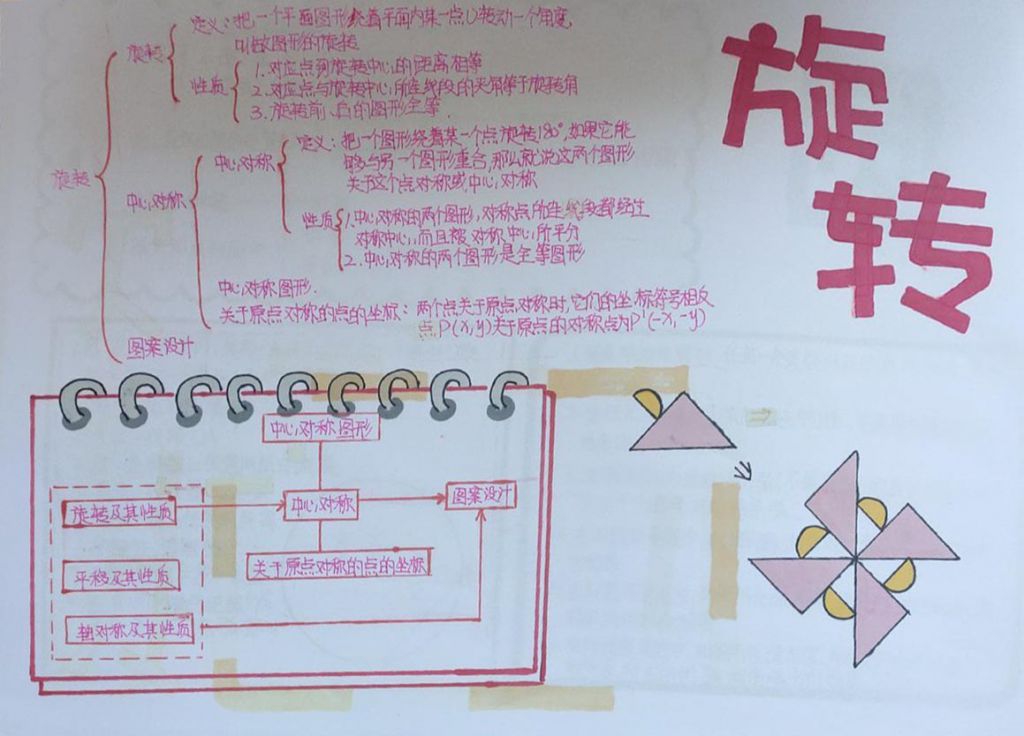 旋转
旋转
旋转
定义：把一个平面图形绕着平面内某一点O转动一个角度，
叫做图形的旋转
性质
1. 对应点到旋转中心的距离相等
2. 对应点与旋转中心所连线段的夹角等于旋转角
3. 旋转前、后的图形全等
中心对称
中心对称
定义：把一个图形绕着某一个点旋转180°,如果它能
够与另一个图形重合,那么就说这两个图形
关于这个点对称或中心对称
性质
1.中心对称的两个图形,对称点所连线段都经过
对称中心,而且被对称中心所平分
2.中心对称的两个图形是全等图形
中心对称图形.
关于原点对称的点的坐标：两个点关于原点对称时,它们的坐标符号相反
点P(x,y)关于原点的对称点为P'(-x,-y)
图案设计
中心对称图形
旋转及其性质
中心对称
图案设计
关于原点对称的点的坐标
平移及其性质
轴对称及其性质